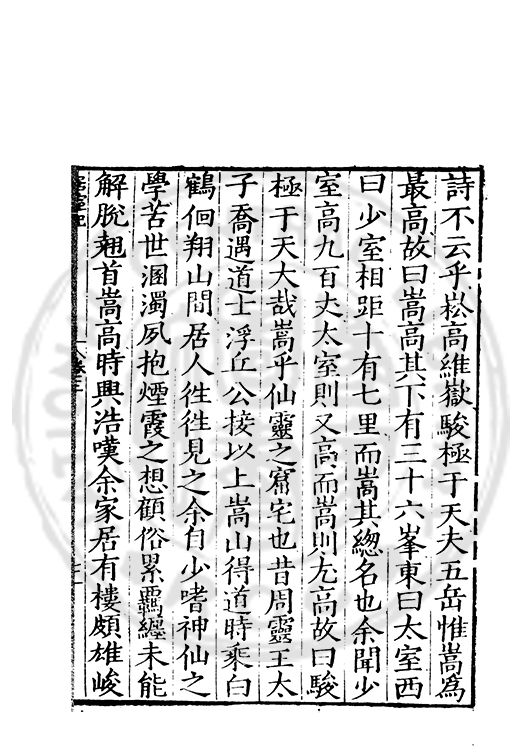 詩不云乎崧高維嶽駿極于天夫五岳惟嵩爲
最高故曰嵩高其下有三十六峯東曰太室西
曰少室相距十有七里而嵩其緫名也余聞少
室高九百丈太室則又高而嵩則尤高故曰駿
極于天大哉嵩乎仙靈之窟宅也昔周靈王太
子喬遇道士浮丘公接以上嵩山得道時乘白
鶴佪翔山間居人徃徃見之余自少嗜神仙之
學苦世溷濁夙抱煙霞之想顧俗累羈纏未能
解脫翹首嵩高時興浩嘆余家居有樓頗雄峻